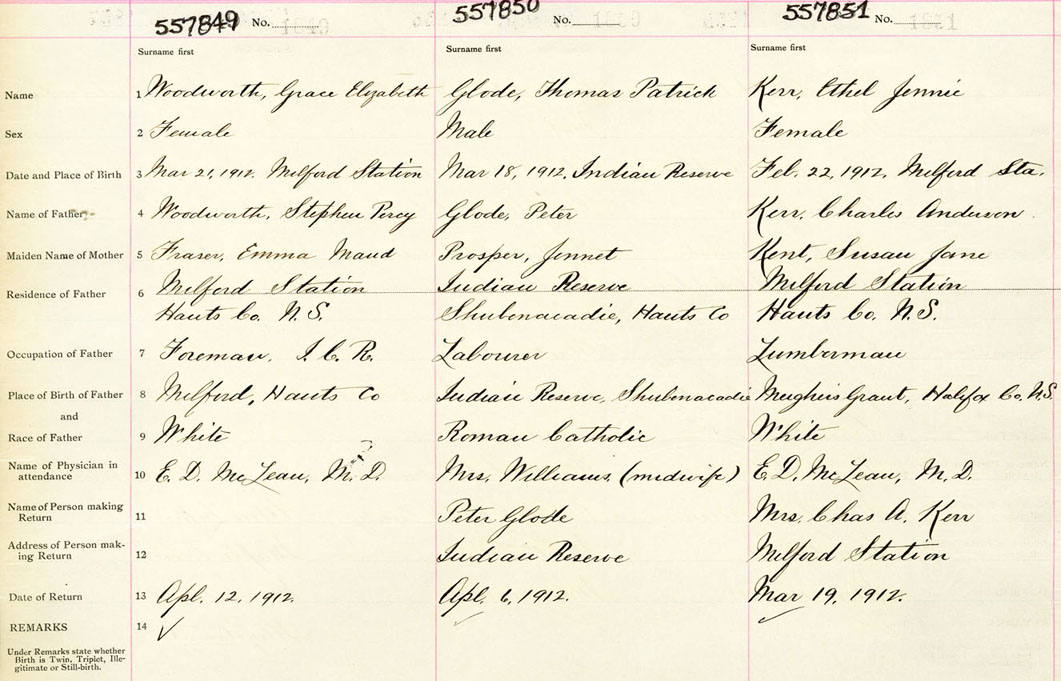 557849 No. 1849 557850 No. 1850 557851 No. 1851
Surname first Surname first Surname first
Name 1 Woodworth, Grace Elizabeth Glode, Thomas Patrick Kerr, Ethel Jennie
Sex 2 Female Male Female
Date and Place of Birth 3 Mar 21, 1912. Milford Station Mar 18, 1912, Indian Reserve Feb. 22, 1912, Milford Sta.
Name of Father 4 Woodworth, Stephen Percy Glode, Peter Kerr, Charles Anderson
Maiden Name of Mother 5 Fraser, Emma Maud Prosper, Jennet Kent, Susan Jane
Residence of Father 6 Milford Station Indian Reserve Milford Station
Hants Co. N.S. Shubenacadie, Hants Co Hants Co. N.S.
Occupation of Father 7 Foreman, I.C.R. Labourer Lumberman
Place of Birth of Father 8 Milford, Hants Co Indian Reserve, Shubenacadie Meaghers Grant, Halifax Co. N.S.
and
Race of Father 9 White Roman Catholic White
Name of Physician in
attendance 10 E. D. McLean, M.D. Mrs. Williams (midwife) E. D. McLean, M.D.
Name of Person making
Return 11 Peter Glode Mrs. Chas A. Kerr
Address of Person mak-
ing Return 12 Indian Reserve Milford Station
Date of Return 13 Apl. 12, 1912. Apl. 6, 1912. Mar 19, 1912.
REMARKS 14
Under Remarks state whether
Birth is Twin, Triplet, Ille-
gitimate or Still-birth.